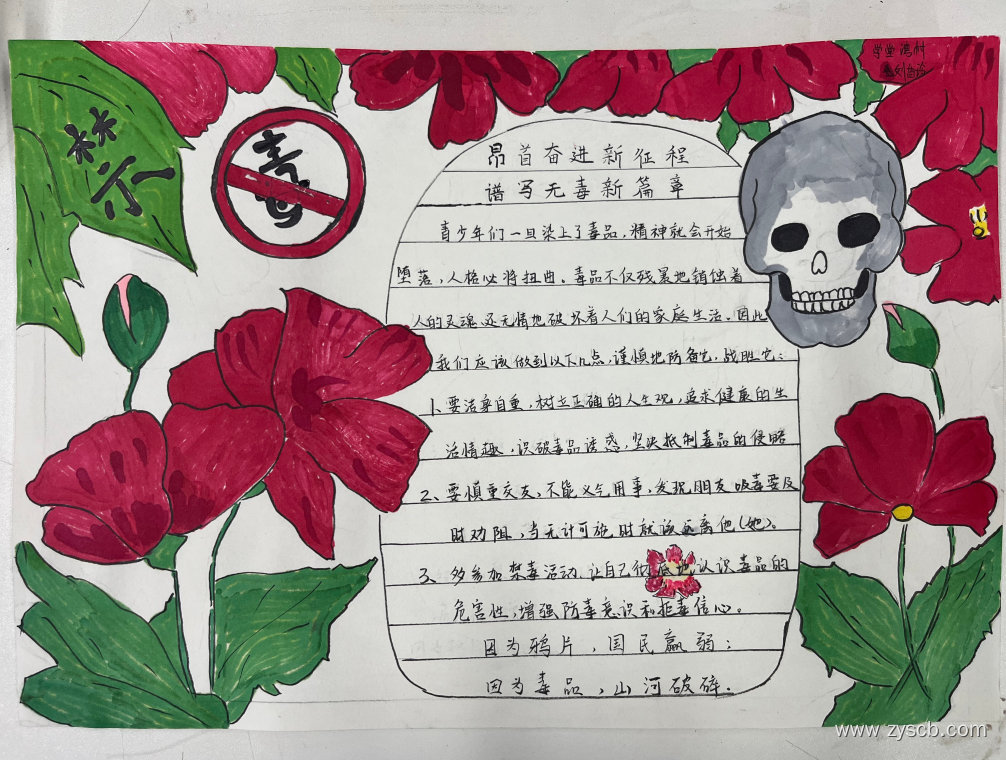 禁
毒
昂首奋进新征程
谱写无毒新篇章
青少年们一旦染上了毒品，精神就会开始
堕落，人格必将扭曲。毒品不仅残暴地销蚀着
人的灵魂，还无情地破坏着人们的家庭生活。因此
我们应该做到以下几点，谨慎地防备它，战胜它：
1、要洁身自重，树立正确的人生观，追求健康的生
活情趣，识破毒品诱惑，坚决抵制毒品的侵略
2、要慎重交友，不能义气用事，发现朋友吸毒要及
时劝阻，当无计可施时就该远离他(她)。
3、多参加禁毒活动，让自己彻底地认识毒品的
危害性，增强防毒意识和拒毒信心。
因为鸦片，国民羸弱；
因为毒品，山河破碎。
www.zyscb.com